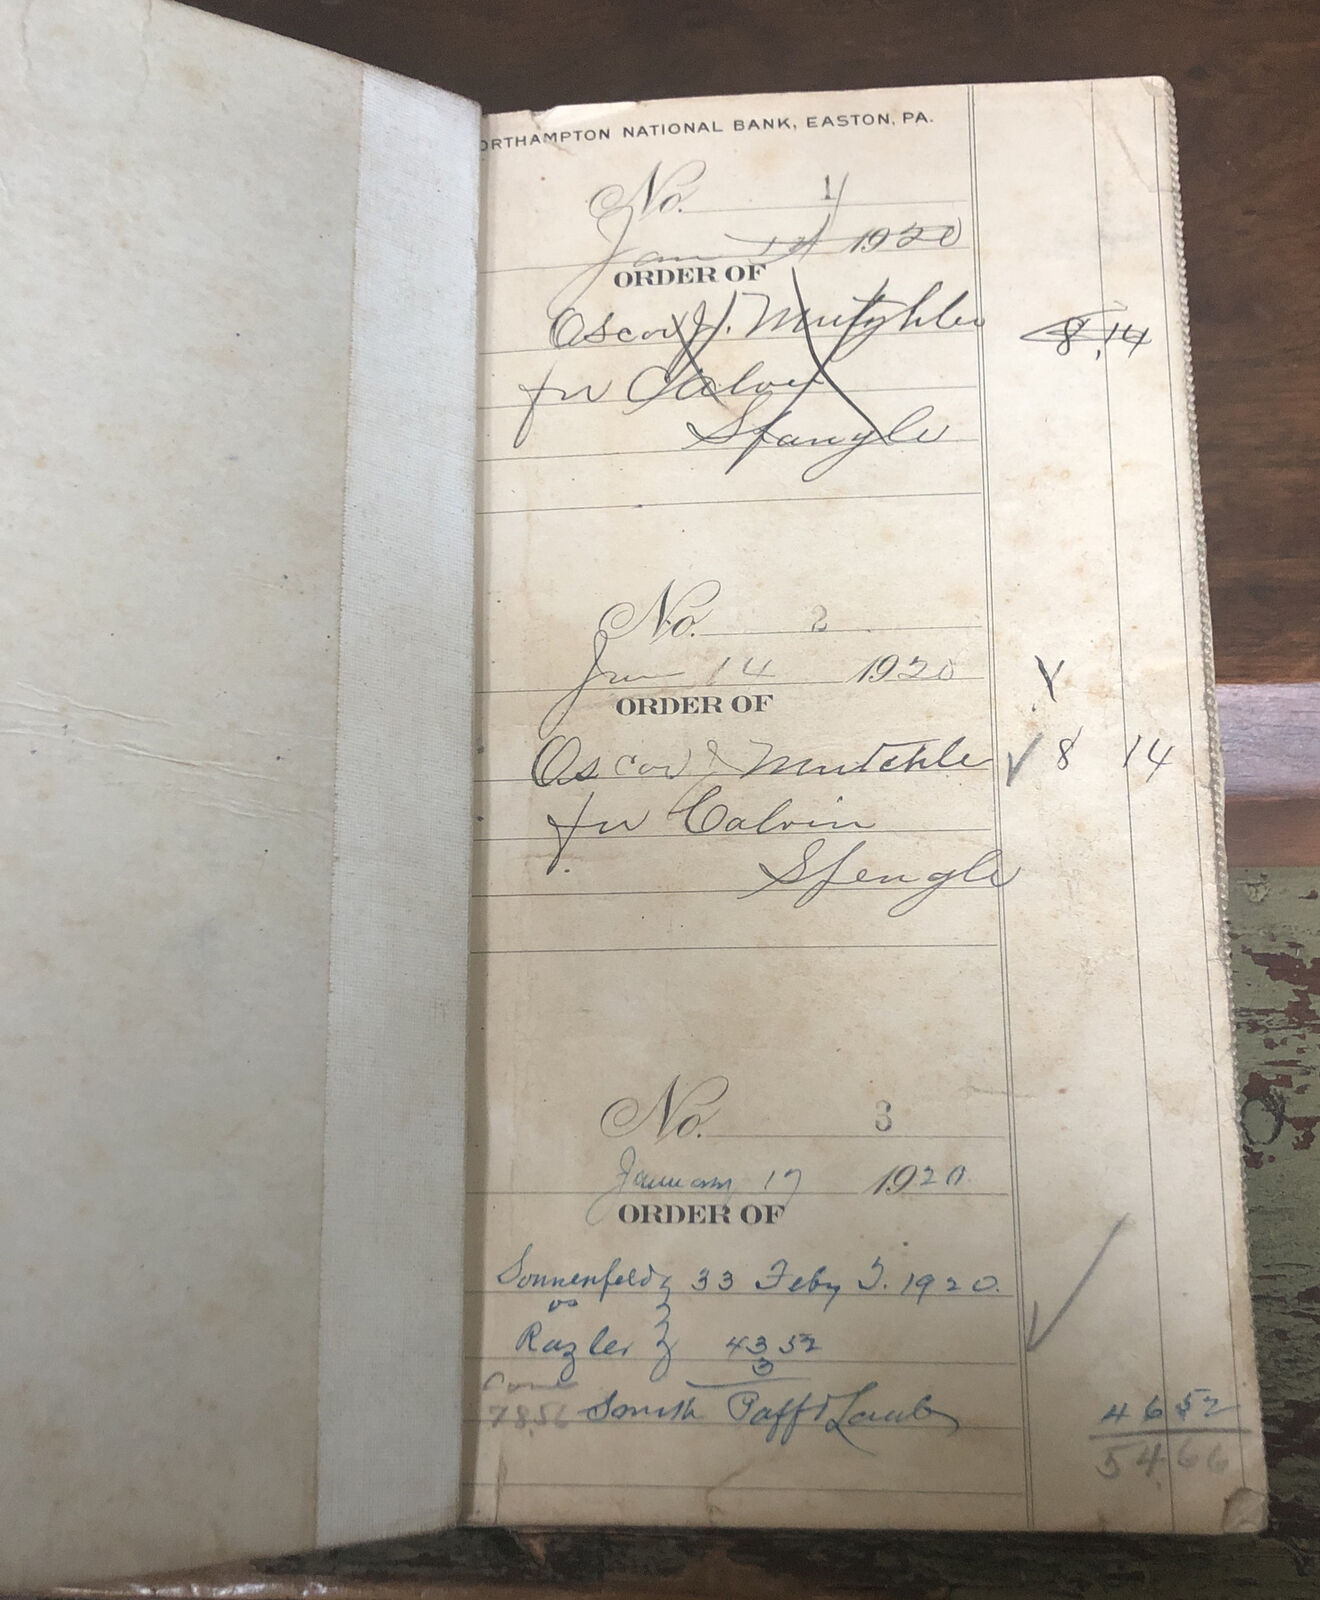 ORTHAMPTON NATIONAL BANK, EASTON, PA.
No. 1
Jan 14 1920
ORDER OF
Oscar J. Mutchler 8.14
for Calvin
Spangle
No. 2
Jan 14 1920
ORDER OF
Oscar J Mutchle 8 14
for Calvin
Spengle
No. 3
January 17 1920
ORDER OF
Sonnenfeld 33 Feby T. 1920.
vs
Razler 43 52
3
7856 Smith Paff & Laub 46 52
54 66